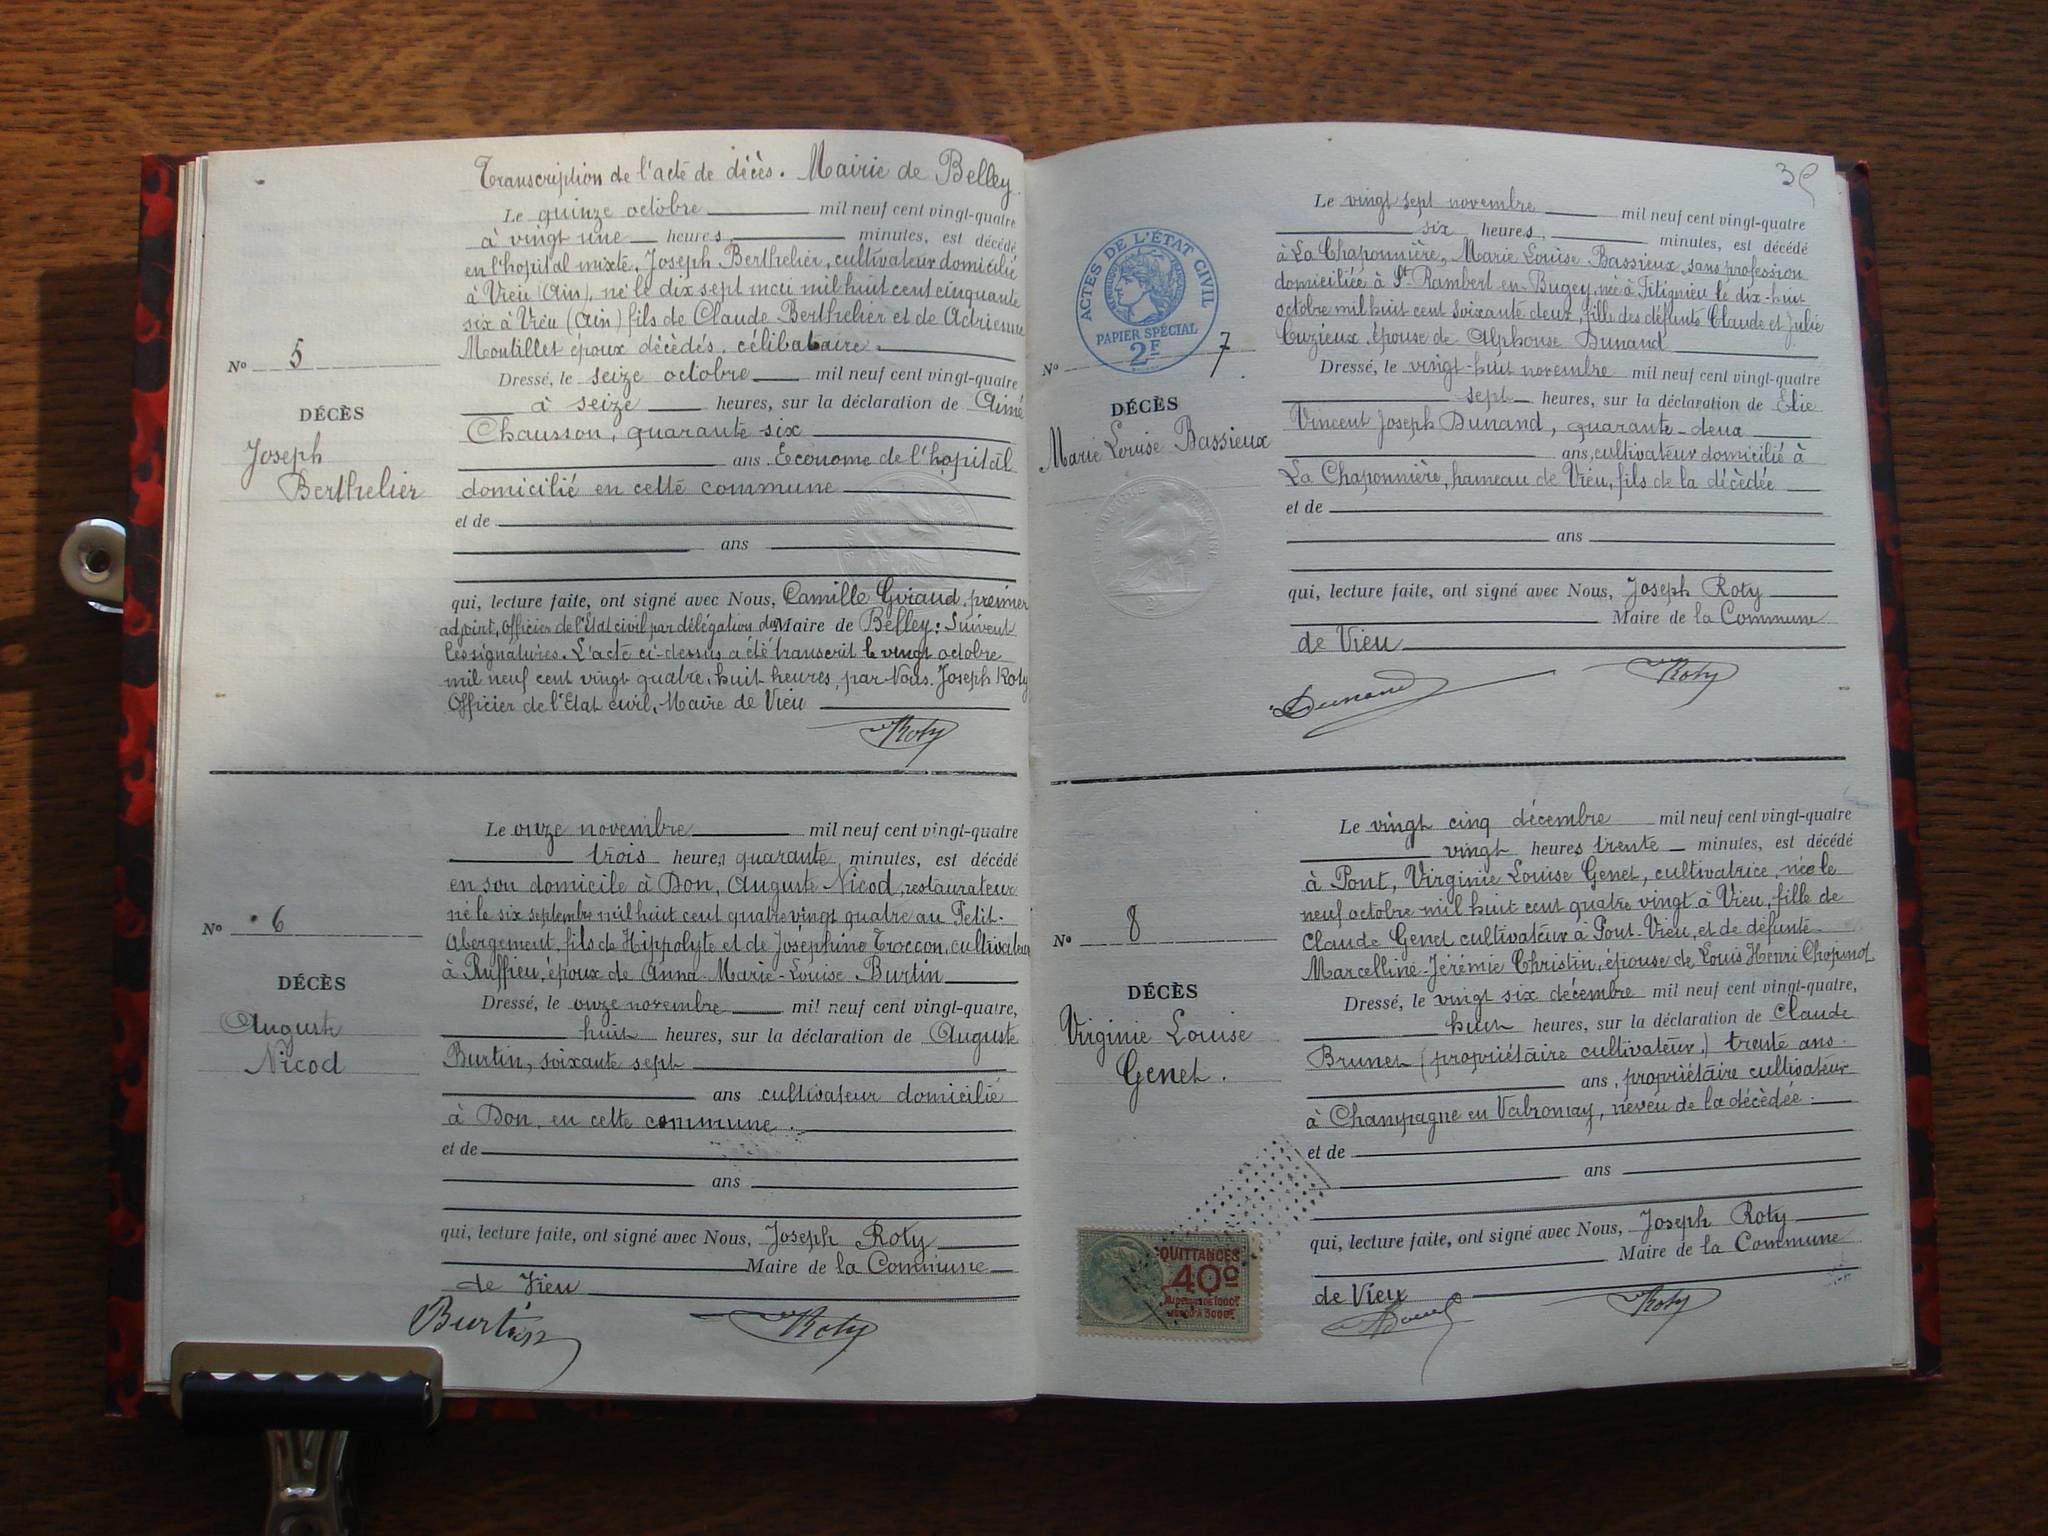 Transcription de l'acte de décès. Mairie de Belley.
Le quinze octobre mil neuf cent vingt-quatre
à vingt une heures, minutes, est décédé
en l'hopital mixte, Joseph Berthelier, cultivateur domicilié
à Vieu (Ain), né le dix sept mai mil huit cent cinquante
six à Vieu (Ain) fils de Claude Berthelier et de Adrienne
Montillet époux décédés, célibataire.
Dressé, le seize octobre mil neuf cent vingt-quatre
à seize heures, sur la déclaration de Aimé
Chausson, quarante six
ans Econome de l'hopital
domicilié en cette commune
et de
ans
qui, lecture faite, ont signé avec Nous, Camille Giraud, premier
adjoint, Officier de l'état civil par délégation du Maire de Belley: Suivent
les signatures. L'acte ci-dessus a été transcrit le vingt octobre
mil neuf cent vingt quatre, huit heures, par Nous Joseph Roty
Officier de l'Etat civil, Maire de Vieu
Roty
No 5
DÉCÈS
Joseph
Berthelier
Le onze novembre mil neuf cent vingt-quatre
trois heures quarante minutes, est décédé
en son domicile à Don, Auguste Nicod, restaurateur
né le six septembre mil huit cent quatre vingt quatre au Petit-
Abergement, fils de Hippolyte et de Joséphine Troccon, cultivateurs
à Ruffieu, époux de Anna Marie-Louise Burtin
Dressé, le onze novembre mil neuf cent vingt-quatre,
huit heures, sur la déclaration de Auguste
Burtin, soixante sept
ans cultivateur domicilié
à Don, en cette commune.
et de
ans
qui, lecture faite, ont signé avec Nous, Joseph Roty
Maire de la Commune
de Vieu
Burtin Roty
No 6
DÉCÈS
Auguste
Nicod
Le vingt sept novembre mil neuf cent vingt-quatre
six heures, minutes, est décédé
à La Chaponnière, Marie Louise Bassieux, sans profession
domiciliée à St Rambert en-Bugey, née à Fitignieu le dix-huit
octobre mil huit cent soixante deux, fille des défunts Claude et Julie
Cuzieux, épouse de Alphonse Dunand
Dressé, le vingt-huit novembre mil neuf cent vingt-quatre
sept heures, sur la déclaration de Elie
Vincent Joseph Dunand, quarante-deux
ans, cultivateur domicilié à
La Chaponnière, hameau de Vieu, fils de la décédée
et de
ans
qui, lecture faite, ont signé avec Nous, Joseph Roty
Maire de la Commune
de Vieu
Dunand Roty
ACTES DE L'ÉTAT CIVIL
PAPIER SPÉCIAL
2F
No 7
DÉCÈS
Marie Louise Bassieux
Le vingt cinq décembre mil neuf cent vingt-quatre
vingt heures trente minutes, est décédé
à Pont, Virginie Louise Genet, cultivatrice, née le
neuf octobre mil huit cent quatre vingt à Vieu, fille de
Claude Genet cultivateur à Pont-Vieu, et de défunte
Marcelline-Jérémie Christin, épouse de Louis Henri Chopinot
Dressé, le vingt six décembre mil neuf cent vingt-quatre,
huit heures, sur la déclaration de Claude
Brunet (propriétaire cultivateur) trente ans
ans, propriétaire cultivateur
à Champagne en Valromay, neveu de la décédée.
et de
ans
qui, lecture faite, ont signé avec Nous, Joseph Roty
Maire de la Commune
de Vieu
Roty
No 8
DÉCÈS
Virginie Louise
Genet.
QUITTANCES
40c